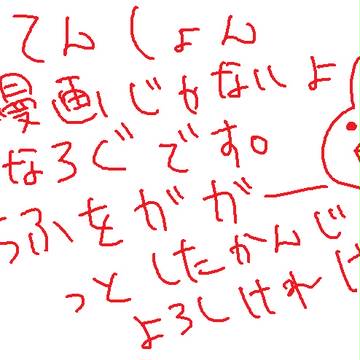 てんしょん
漫画じゃないよ
なろぐです。
らふをガガー
っとしたかんじ
よろしければ